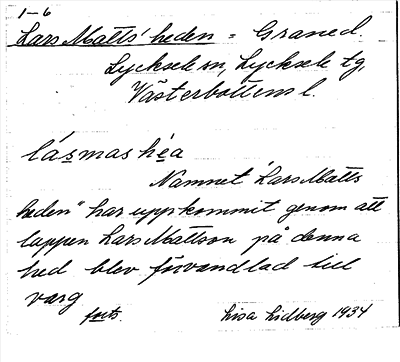 1-6
Lars Matts'heden = Graned.
Lycksele sn, Lycksele tg,
Västerbottens l.
lásmas héa
Namnet "Lars Matts
heden" har uppkommit genom att
lappen Lars Mattson på denna
hed blev förvandlad till
varg
forts.
Lisa Lidberg 1934